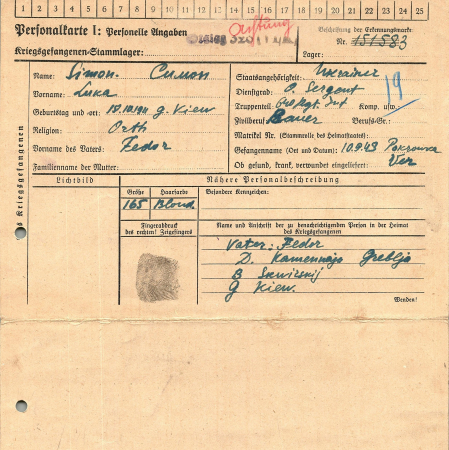 1 2 3 4 5 6 7 8 9 10 11 12 13 14 15 16 17 18 19 20 21 22 23 24 25
Personalkarte I: Personelle Angaben
Kriegsgefangenen-Stammlager: Stalag
Beschriftung der Erkennungsmarke:
Nr. 151583
Lager:
des Kriegsgefangenen
Name: Simon - Симон
Vorname: Luka
Geburtstag und -ort: 18.10.1911 g. Kiew
Religion: Orth
Vorname des Vaters: Fedor
Familienname der Mutter:
Staatsangehörigkeit: Ukrainer
Dienstgrad: O. Sergent
Truppenteil: Rgt. Inf Komp. usw.:
Zivilberuf: Bauer Berufs-Gr.:
Matrikel Nr. (Stammrolle des Heimatstaates):
Gefangennahme (Ort und Datum): 10.9.43 Pokrowka
Ob gesund, krank, verwundet eingeliefert: Ver
19
Lichtbild
Nähere Personalbeschreibung
Größe Haarfarbe Besondere Kennzeichen:
165 Blond
Fingerabdruck
des rechten! Zeigefingers
Name und Anschrift der zu benachrichtigenden Person in der Heimat
des Kriegsgefangenen
Vater: Fedor
D. Kamennaja Greblja
G Kiew.
Wenden!